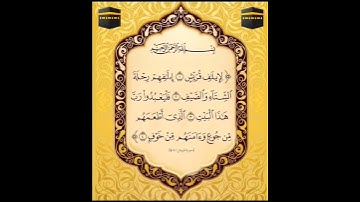 بِسْمِ اللَّهِ الرَّحْمَٰنِ الرَّحِيمِ
﴿ لِإِيلَٰفِ قُرَيْشٍ ۝١ إِۦلَٰفِهِمْ رِحْلَةَ
ٱلشِّتَآءِ وَٱلصَّيْفِ ۝٢ فَلْيَعْبُدُوا۟ رَبَّ
هَٰذَا ٱلْبَيْتِ ۝٣ ٱلَّذِىٓ أَطْعَمَهُم
مِّن جُوعٍ وَءَامَنَهُم مِّنْ خَوْفٍۭ ۝٤ ﴾